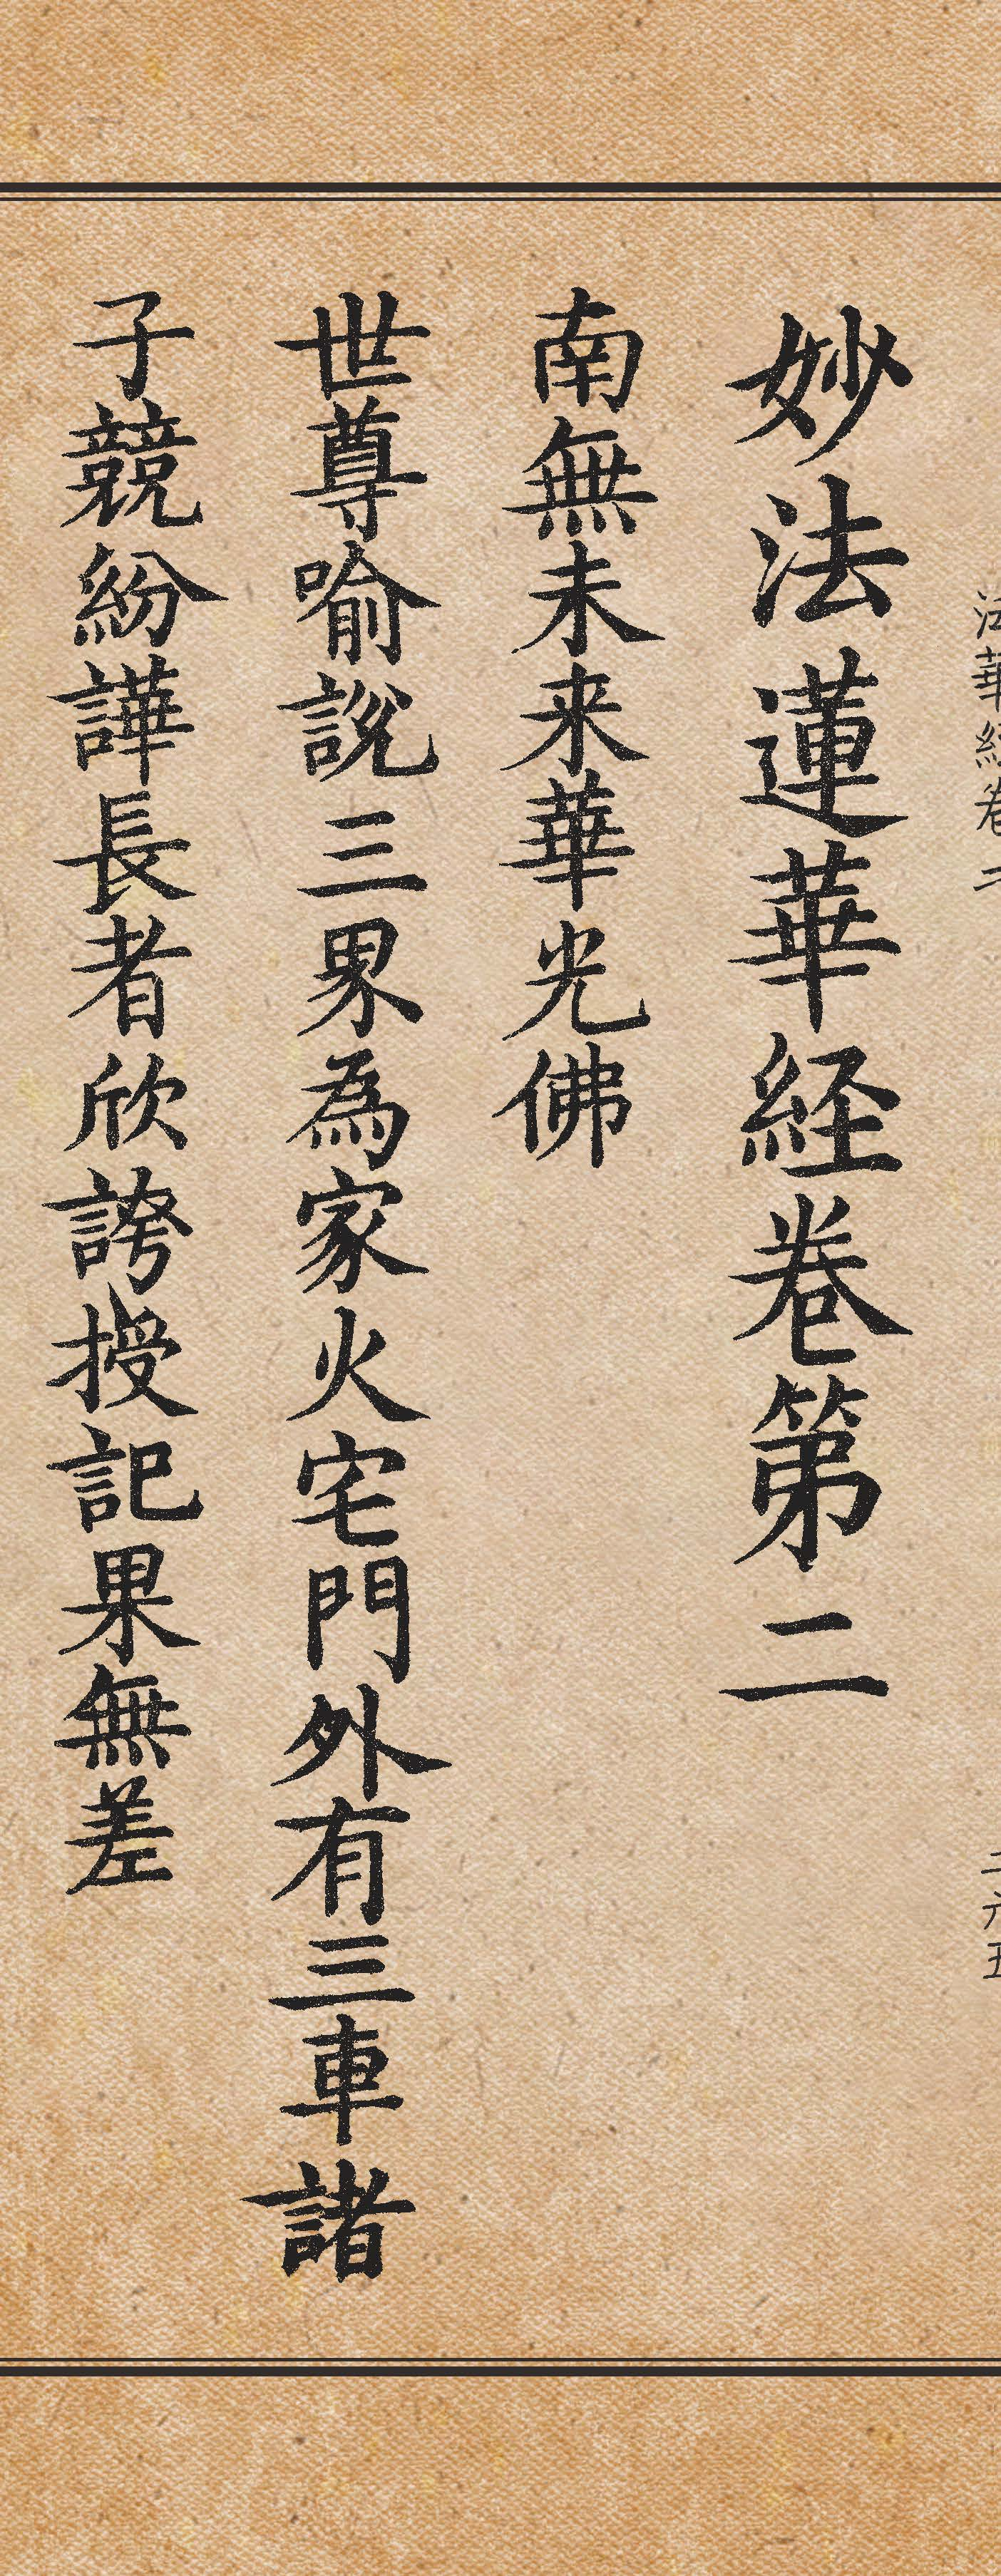 法華経卷二 二六五
妙法蓮華経卷第二
南無未来華光佛
世尊喻說三界為家火宅門外有三車諸
子競紛譁長者欣誇授記果無差